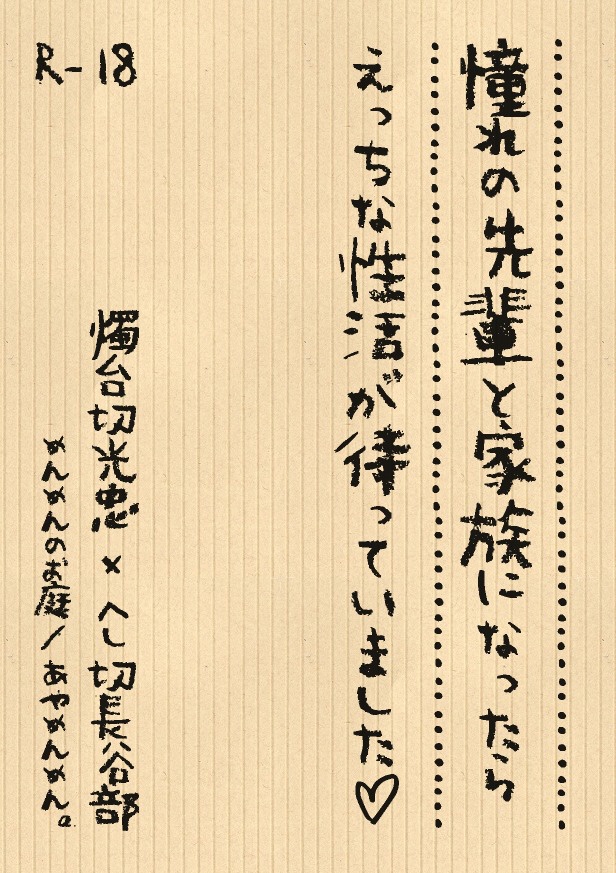 憧れの先輩と家族になったら
えっちな性活が待っていました♡
燭台切光忠×へし切長谷部
めんめんのお庭/あやめんめん。
R-18